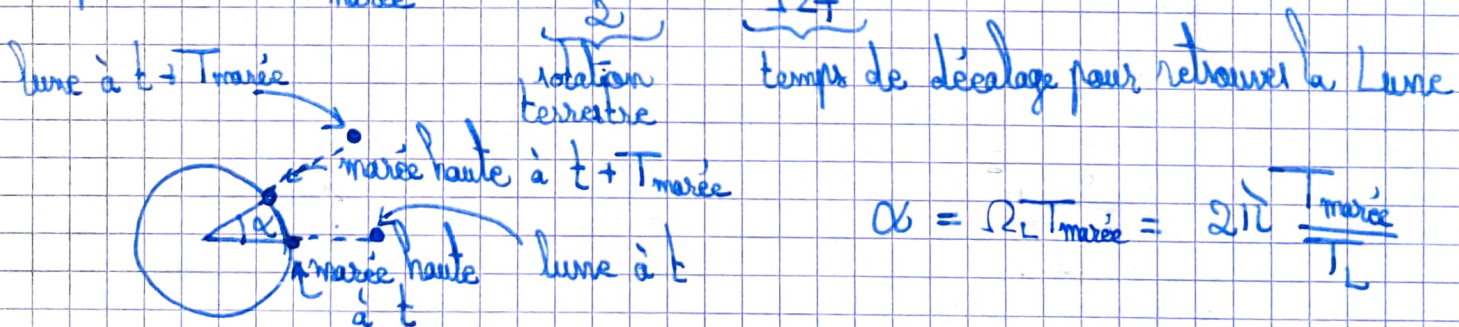 2
rotation
terrestre
temps de décalage pour retrouver la Lune
lune à t + Tmarée
marée haute à t + Tmarée
α
marée haute
à t
lune à t
α = Ω_L Tmarée = 2π Tmarée / T_L